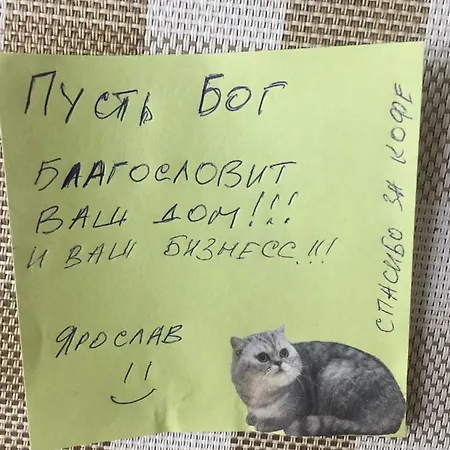 Пусть Бог
Благословит
ваш дом!!!
и ваш бизнесс!!!
Ярослав
спасибо за кофе